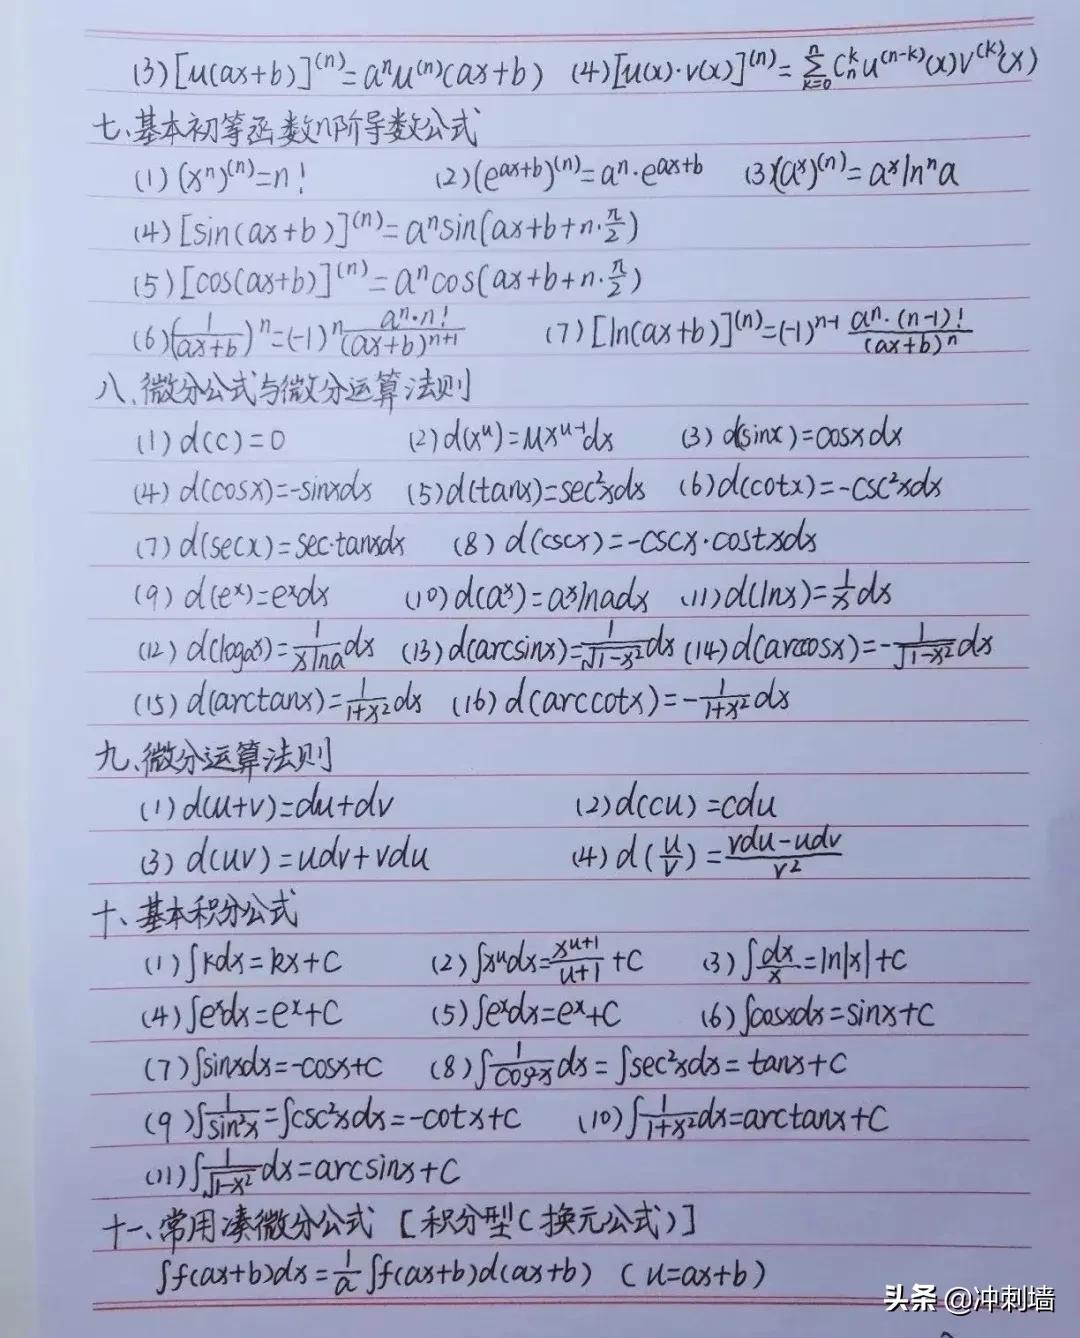 (3)[u(ax+b)]⁽ⁿ⁾=aⁿu⁽ⁿ⁾(ax+b) (4)[u(x)·v(x)]⁽ⁿ⁾=∑ₖ₌₀ⁿ Cₙᵏu⁽ⁿ⁻ᵏ⁾(x)v⁽ᵏ⁾(x)
七、基本初等函数n阶导数公式
(1)(xⁿ)⁽ⁿ⁾=n! (2)(e^(ax+b))⁽ⁿ⁾=aⁿ·e^(ax+b) (3)(aˣ)⁽ⁿ⁾=aˣlnⁿa
(4)[sin(ax+b)]⁽ⁿ⁾=aⁿsin(ax+b+n·π/2)
(5)[cos(ax+b)]⁽ⁿ⁾=aⁿcos(ax+b+n·π/2)
(6)(1/(ax+b))ⁿ=(-1)ⁿ aⁿ·n!/(ax+b)ⁿ⁺¹ (7)[ln(ax+b)]⁽ⁿ⁾=(-1)ⁿ⁻¹ aⁿ·(n-1)!/(ax+b)ⁿ
八、微分公式与微分运算法则
(1)d(c)=0 (2)d(xᵘ)=uxᵘ⁻¹dx (3)d(sinx)=cosxdx
(4)d(cosx)=-sinxdx (5)d(tanx)=sec²xdx (6)d(cotx)=-csc²xdx
(7)d(secx)=sec·tanxdx (8)d(cscx)=-cscx·costxdx
(9)d(eˣ)=eˣdx (10)d(aˣ)=aˣlnadx (11)d(lnx)=1/x dx
(12)d(logaˣ)=1/(xlna)dx (13)d(arcsinx)=1/√(1-x²)dx (14)d(arccosx)=-1/√(1-x²)dx
(15)d(arctanx)=1/(1+x²)dx (16)d(arccotx)=-1/(1+x²)dx
九、微分运算法则
(1)d(u+v)=du+dv (2)d(cu)=cdu
(3)d(uv)=udv+vdu (4)d(u/v)=(vdu-udv)/v²
十、基本积分公式
(1)∫kdx=kx+C (2)∫xᵘdx=xᵘ⁺¹/(u+1)+C (3)∫dx/x=ln|x|+C
(4)∫eˣdx=eˣ+C (5)∫eˣdx=eˣ+C (6)∫cosxdx=sinx+C
(7)∫sinxdx=-cosx+C (8)∫1/cos²x dx=∫sec²xdx=tanx+C
(9)∫1/sin²x=∫csc²xdx=-cotx+C (10)∫1/(1+x²)dx=arctanx+C
(11)∫1/√(1-x²)dx=arcsinx+C
十一、常用凑微分公式 [积分型(换元公式)]
∫f(ax+b)dx=1/a ∫f(ax+b)d(ax+b) (u=ax+b)
头条 @冲刺墙